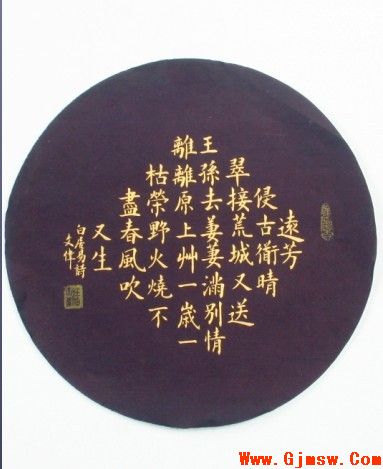 遠芳
侵古衜晴
翠接荒城又送
王孫去萋萋滿別情
離離原上艸一歲一
枯榮野火燒不
盡春風吹
又生
白居易詩
文偉
Www.Gjmsw.com